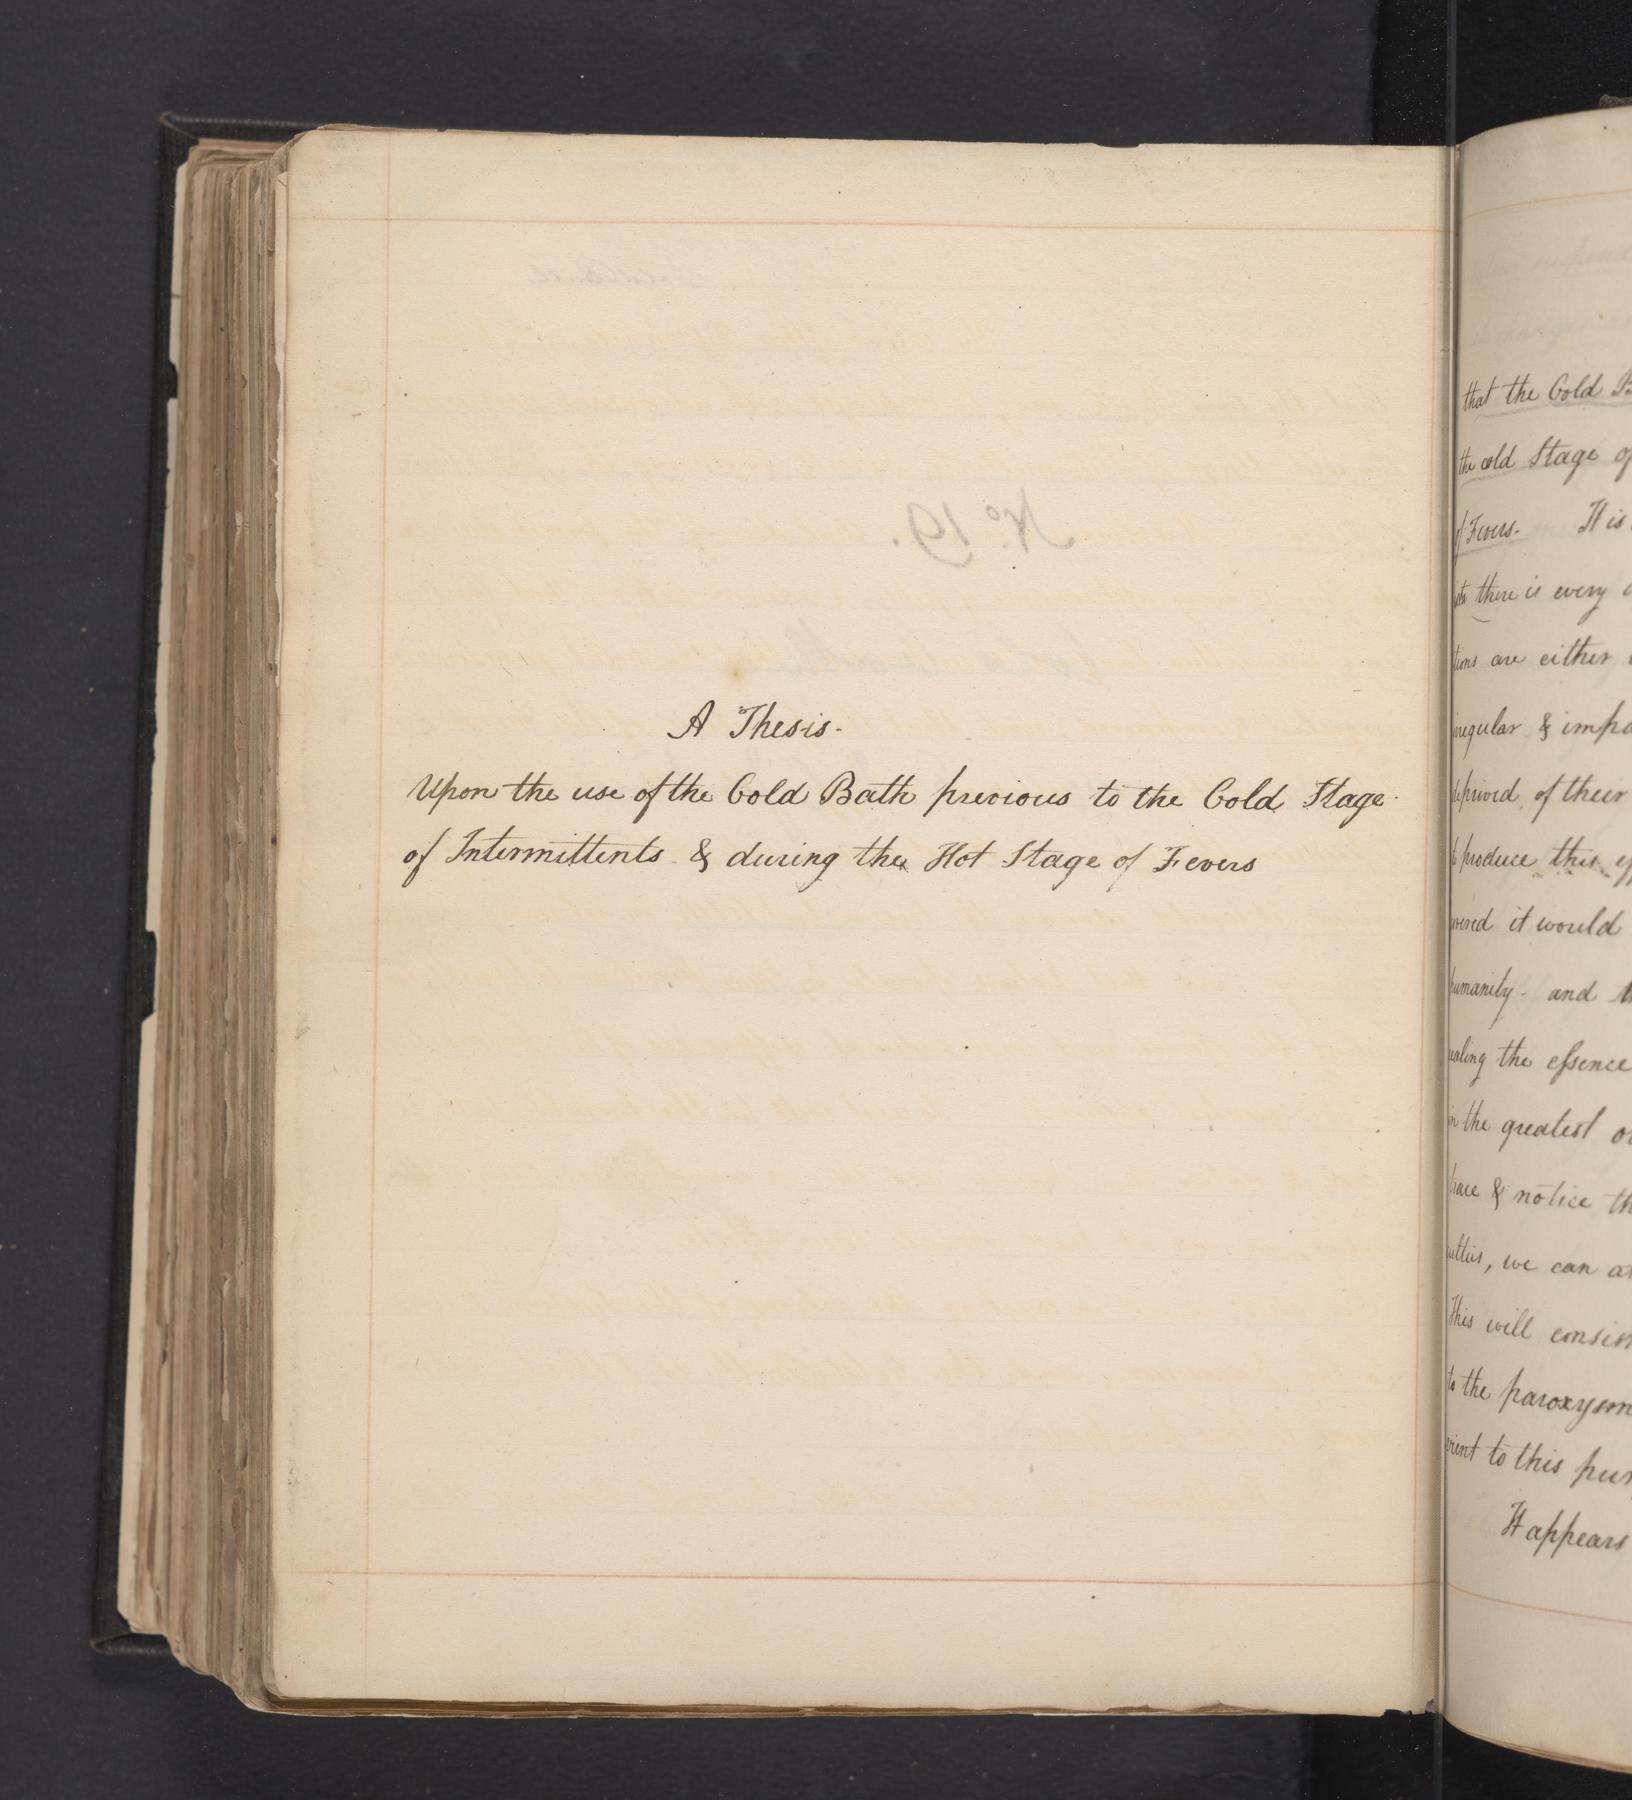 No. 19.
A Thesis.
Upon the use of the Cold Bath previous to the Cold Stage
of Intermittents & during the Hot Stage of Fevers
that the Cold
the cold Stage of
of Fevers. It is
there is every
tions are either
irregular & impo
deprived of their
to produce this eff
it would
humanity - and
ealing the essence
in the greatest
trace & notice th
, we can
This will consis
to the paroxysm
to this pur
It appears